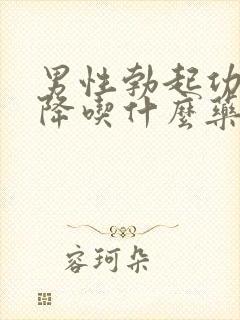 男性勃起功
降喫什麼藥
容珂朵